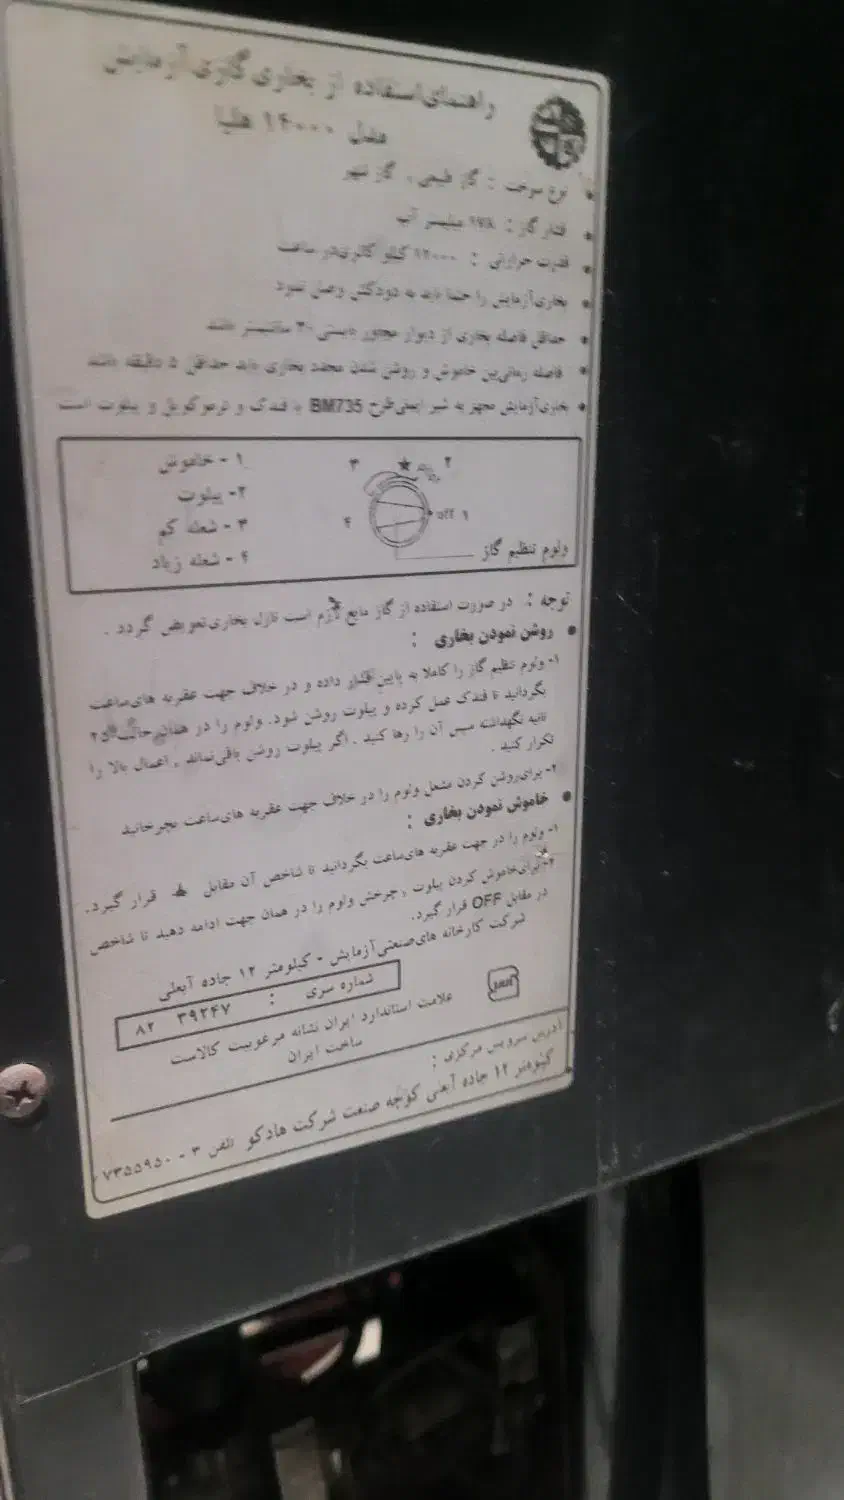 راهنمای استفاده از بخاری گازی آزمایش
مدل ۱۲۰۰۰ هلیا
نوع سوخت : گاز طبیعی ، گاز شهر
فشار گاز : ۱۷۸ میلیمتر آب
قدرت حرارتی : ۱۲۰۰۰ کیلو کالری در ساعت
بخاری آزمایش را حتما باید به دودکش وصل نمود
حداقل فاصله بخاری از دیوار مجاور بایستی ۳۰ سانتیمتر باشد
فاصله زمانی بین خاموش و روشن شدن مجدد بخاری باید حداقل ۵ دقیقه باشد
بخاری آزمایش مجهز به شیر ایمنی طرح BM735 با فندک و ترموکوپل و پیلوت است
۱ - خاموش
۲- پیلوت
۳ - شعله کم
۴ - شعله زیاد
۳ ★ ۲
۴ off ۱
ولوم تنظیم گاز
توجه : در صورت استفاده از گاز مایع لازم است نازل بخاری تعویض گردد .
روشن نمودن بخاری :
۱- ولوم تنظیم گاز را کاملا به پایین فشار داده و در خلاف جهت عقربه های ساعت
بگردانید تا فندک عمل کرده و پیلوت روشن شود. ولوم را در همان حالت
ثانیه نگهداشته سپس آن را رها کنید . اگر پیلوت روشن باقی نماند , اعمال بالا را
تکرار کنید .
۲- برای روشن کردن مشعل ولوم را در خلاف جهت عقربه های ساعت بچرخانید
خاموش نمودن بخاری :
۱- ولوم را در جهت عقربه های ساعت بگردانید تا شاخص آن مقابل ★ قرار گیرد.
۲- برای خاموش کردن پیلوت , چرخش ولوم را در همان جهت ادامه دهید تا شاخص
در مقابل OFF قرار گیرد.
شرکت کارخانه های صنعتی آزمایش - کیلومتر ۱۲ جاده آبعلی
شماره سری : ۳۹۲۴۷ ۸۲
علامت استاندارد ایران نشانه مرغوبیت کالاست
ساخت ایران
آدرس سرویس مرکزی :
کیلومتر ۱۲ جاده آبعلی کوچه صنعت شرکت هادکو تلفن ۳ - ۷۳۵۵۹۵۰